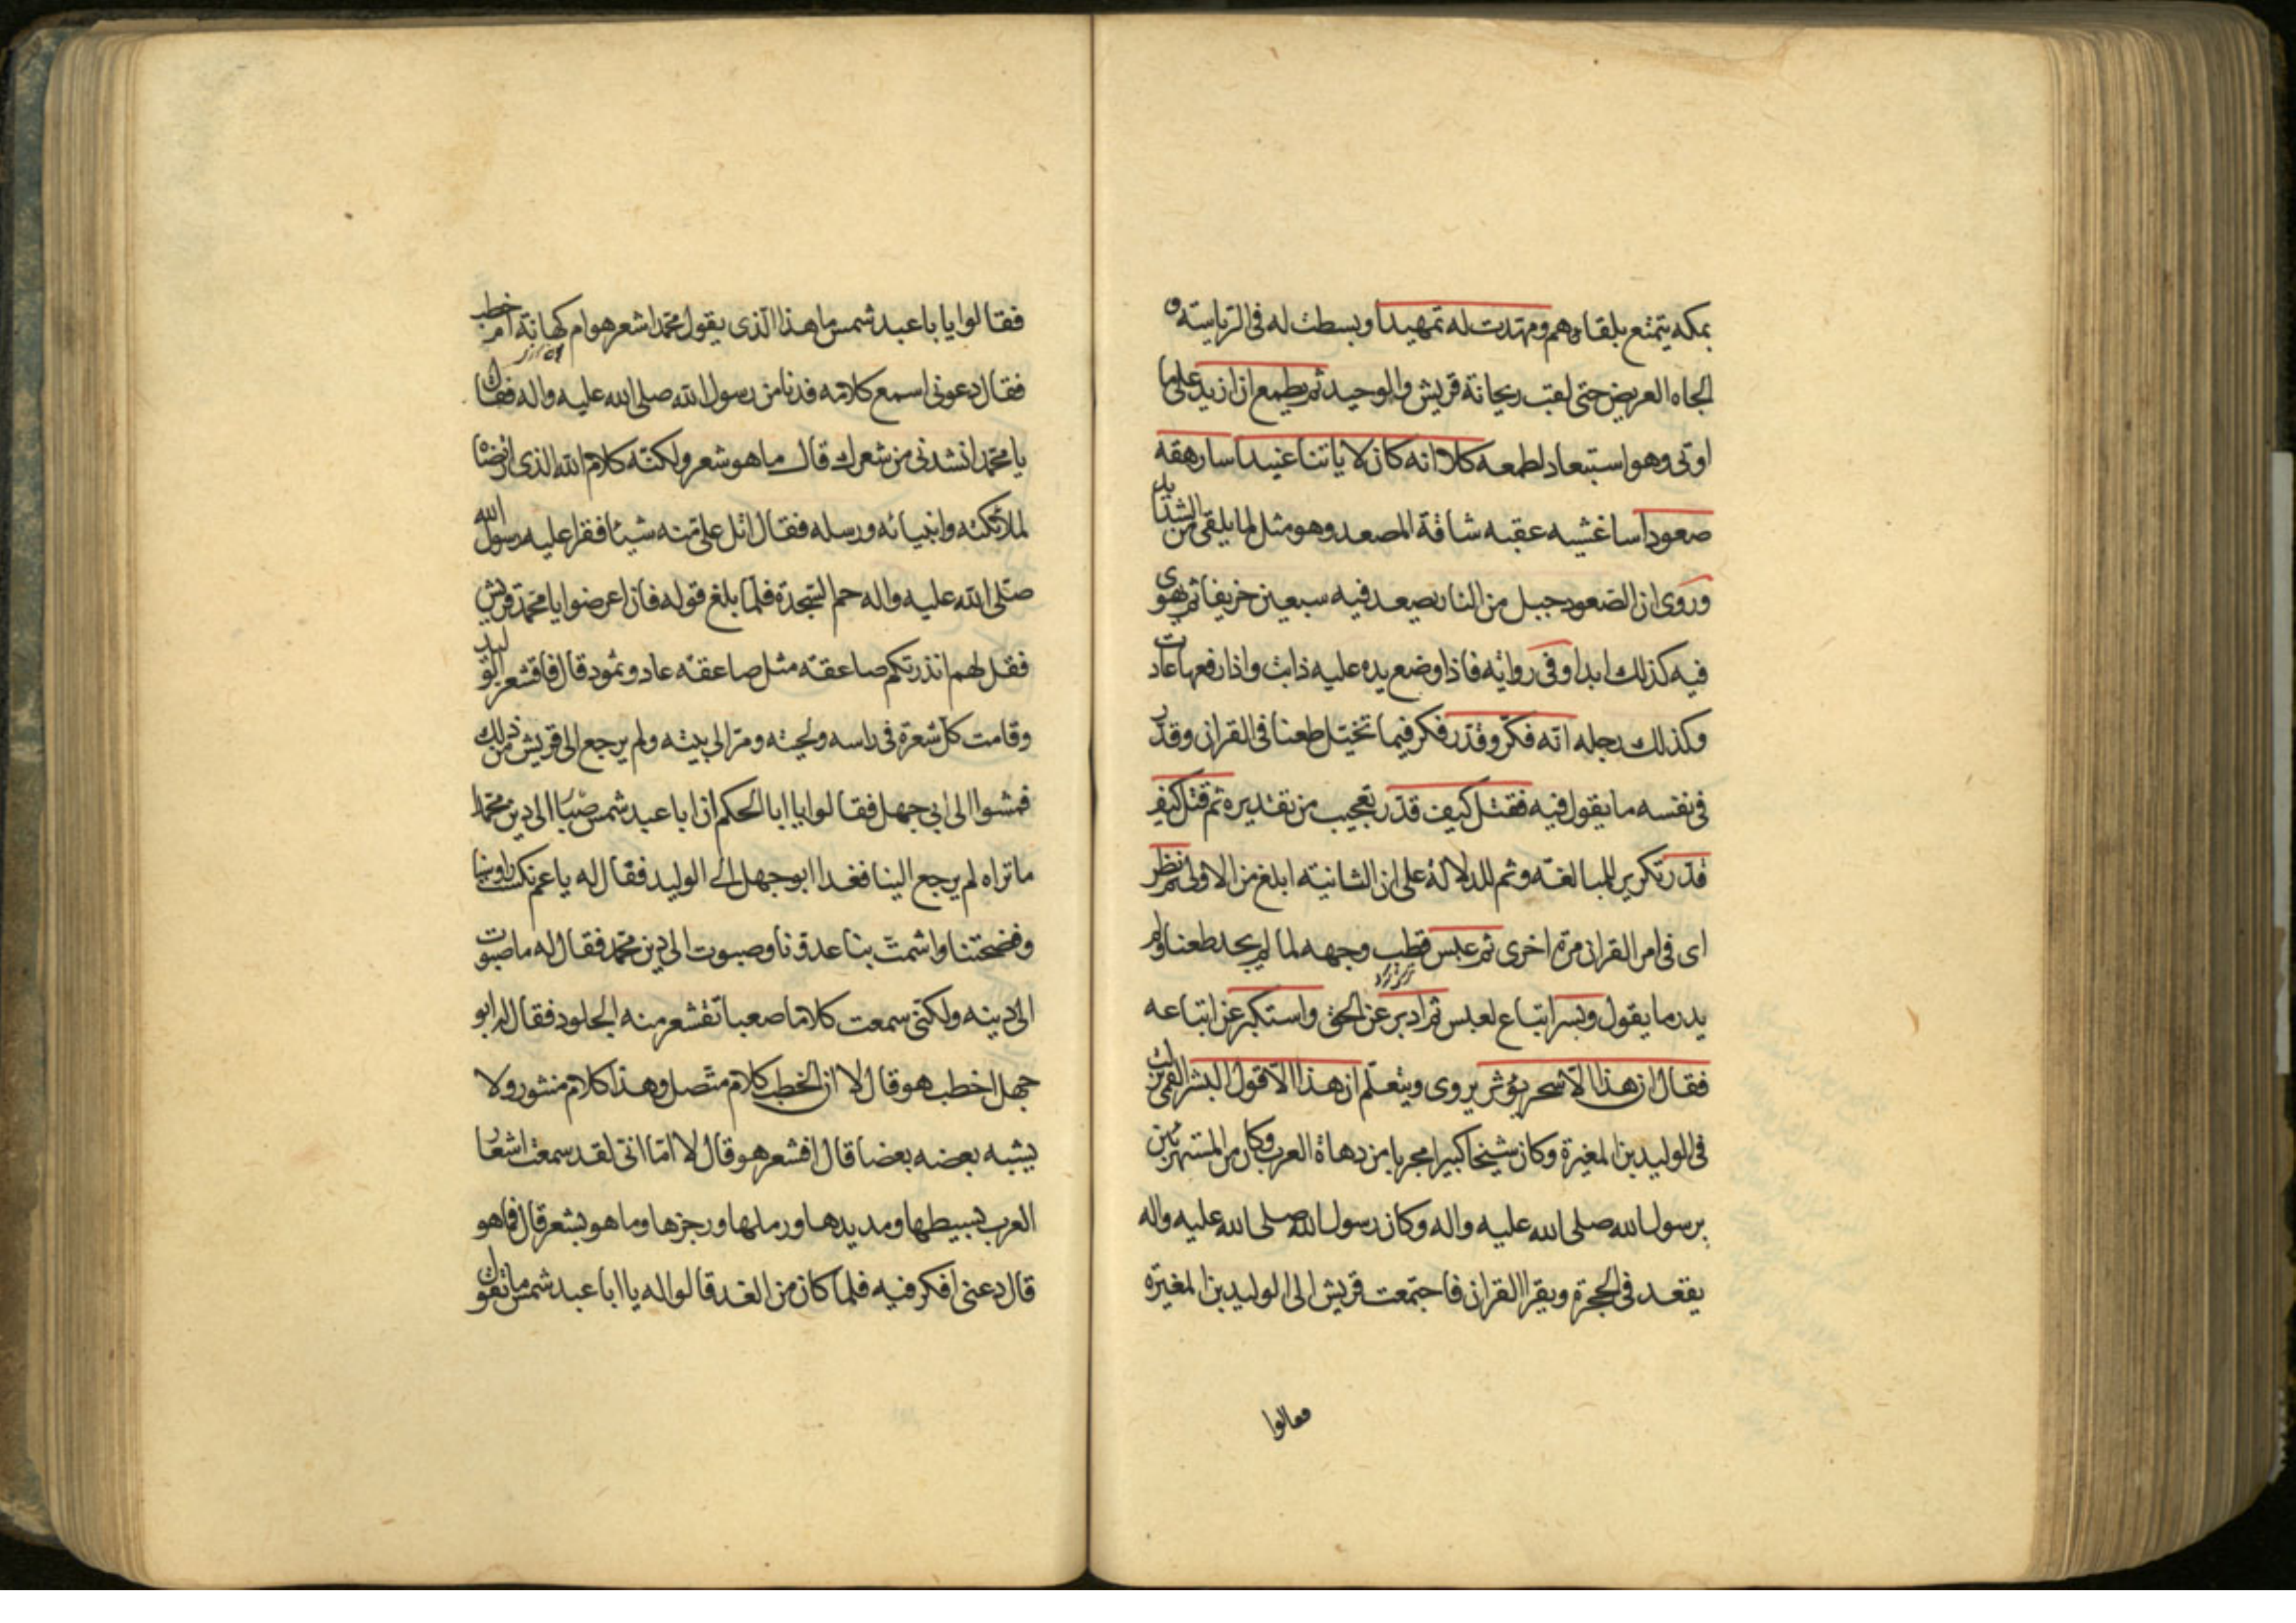 بمكه يتمتع بلقاءهم ومهدت له تمهيدا وبسطت له فى الرياسة و
الجاه العريض حتى لقب ريحانة قريش والوحيد ثم يطمع ان ازيد على ما
اوتى وهو استبعاد لطمعه كلا انه كان لاياتنا عنيدا سارهقه
صعودا ساغشيه عقبه شاقة المصعد وهو مثل لما يلقى من الشدايد
وروى ان الصعود جبل من النار يصعد فيه سبعين خريفا ثم يهوى
فيه كذلك ابدا وفى رواية فاذا وضع يده عليه ذابت واذا رفعها عادت
وكذلك رجله انه فكر وقدر فكر فيما تخيل طعنا فى القران وقدر
فى نفسه ما يقول فيه فقتل كيف قدر تعجيب من تقديره ثم قتل كيف
قدر تكرير للمبالغة وثم للدلالة على ان الثانية ابلغ من الاولى ثم نظر
اى فى امر القران مرة اخرى ثم عبس قطب وجهه لما لم يجد طعنا ولم
يدر ما يقول وبسر اتباع لعبس ثم ادبر عن الحق واستكبر عن اتباعه
فقال ان هذا الا سحر يؤثر يروى ويتعلم ان هذا الا قول البشر القمى نزلت
فى الوليد بن المغيرة وكان شيخا كبيرا مجربا من دهاة العرب وكان من المستهزئين
برسول الله صلى الله عليه واله وكان رسول الله صلى الله عليه واله
يقعد فى الحجرة ويقرا القران فاجتمعت قريش الى الوليد بن المغيرة
فقالوا
فقالوا يا با عبد شمس ما هذا الذى يقول محمد اشعر هو ام كهانة ام خطب
فقال دعونى اسمع كلامه فدنا من رسول الله صلى الله عليه واله فقال
يا محمد انشدنى من شعرك قال ما هو شعر ولكنه كلام الله الذى ارتضاه
لملائكته وانبيائه ورسله فقال اتل على منه شيئا فقرا عليه رسول الله
صلى الله عليه واله حم السجدة فلما بلغ قوله فان اعرضوا يا محمد قريش
فقل لهم انذرتكم صاعقة مثل صاعقة عاد وثمود قال فاقشعر الوليد
وقامت كل شعرة فى راسه ولحيته ومر الى بيته ولم يرجع الى قريش من ذلك
فمشوا الى ابى جهل فقالوا يا ابا الحكم ان ابا عبد شمس صبا الى دين محمد
ما تراه لم يرجع الينا فغدا ابو جهل الى الوليد فقال له يا عم نكست رؤسنا
وفضحتنا واشمت بنا عدونا وصبوت الى دين محمد فقال له ما صبوت
الى دينه ولكنى سمعت كلاما صعبا تقشعر منه الجلود فقال له ابو
جهل اخطب هو قال لا ان الخطب كلام متصل وهذا كلام منثور ولا
يشبه بعضه بعضا قال افشعر هو قال لا اما انى لقد سمعت اشعار
العرب بسيطها ومديدها ورملها ورجزها وما هو بشعر قال فما هو
قال دعنى افكر فيه فلما كان من الغد قالوا له يا ابا عبد شمس ما تقول